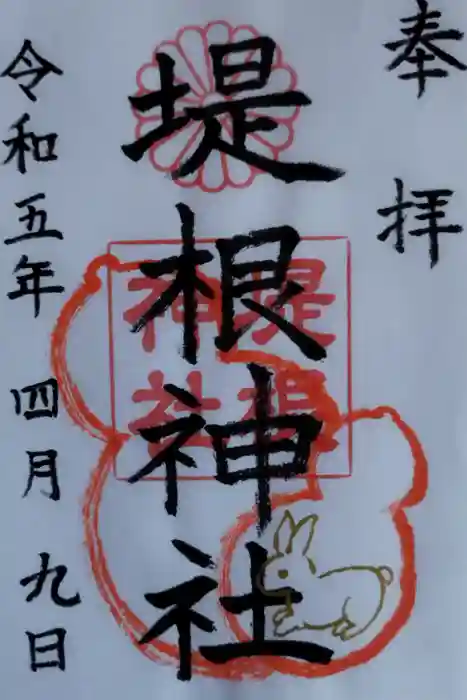 奉拝
堤根神社
堤根神社
令和五年四月九日